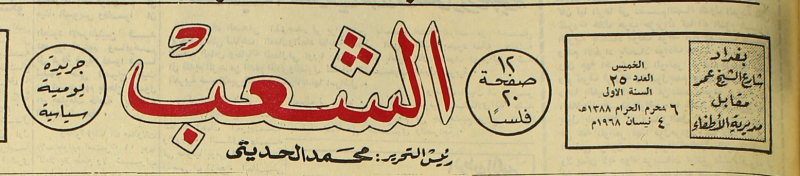 بغداد
شارع الشيخ عمر
مقابل
مديرية الأطفاء
الخميس
العدد ٢٥
السنة الاولى
٦ محرم الحرام ١٣٨٨هـ
٤ نيسان ١٩٦٨م
١٢
صفحة
٢٠
فلسًا
الشعب
جريدة
يومية
سياسية
رئيس التحرير: محمد الحديثي